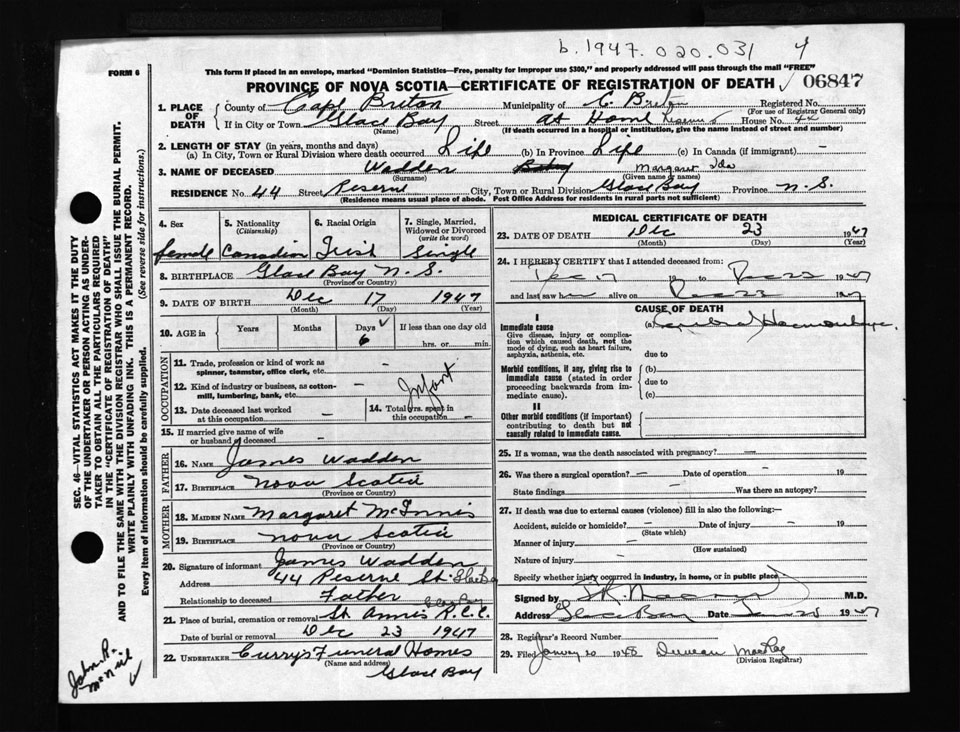 b. 1947. 020. 031 4
FORM 6
This form if placed in an envelope, marked "Dominion Statistics—Free, penalty for improper use $300," and properly addressed will pass through the mail "FREE"
PROVINCE OF NOVA SCOTIA—CERTIFICATE OF REGISTRATION OF DEATH √ 06847
1. PLACE OF DEATH County of Cape Breton Municipality of C. Breton Registered No.
(For use of Registrar General only)
If in City or Town Glace Bay Street at Home Reserve House No. 44
(Name) (If death occurred in a hospital or institution, give the name instead of street and number)
2. LENGTH OF STAY (in years, months and days)
(a) In City, Town or Rural Division where death occurred Life (b) In Province Life (c) In Canada (if immigrant) —
3. NAME OF DECEASED Wadden Baby Margaret Ida
(Surname) (Given name or names)
RESIDENCE No. 44 Street Reserve City, Town or Rural Division Glace Bay Province N.S.
(Residence means usual place of abode. Post Office Address for residents in rural parts not sufficient)
4. Sex 5. Nationality (Citizenship) 6. Racial Origin 7. Single, Married, Widowed or Divorced (write the word)
female Canadian Irish Single
8. BIRTHPLACE Glace Bay N.S.
(Province or Country)
9. DATE OF BIRTH Dec 17 1947
(Month) (Day) (Year)
10. AGE in Years Months Days If less than one day old
6 hrs. or min.
OCCUPATION
11. Trade, profession or kind of work as spinner, teamster, office clerk, etc. —
12. Kind of industry or business, as cotton-mill, lumbering, bank, etc. — Infant
13. Date deceased last worked at this occupation —
14. Total yrs. spent in this occupation —
15. If married give name of wife or husband of deceased —
FATHER
16. NAME James Wadden
17. BIRTHPLACE Nova Scotia
(Province or Country)
MOTHER
18. MAIDEN NAME Margaret McInnis
19. BIRTHPLACE Nova Scotia
(Province or Country)
20. Signature of informant James Wadden
Address 44 Reserve St. Glace Bay
Relationship to deceased Father
21. Place of burial, cremation or removal St. Annis R.C.C. Glace Bay
Date of burial or removal Dec 23 1947
22. UNDERTAKER Currys Funeral Homes
(Name and address)
Glace Bay
MEDICAL CERTIFICATE OF DEATH
23. DATE OF DEATH Dec 23 1947
(Month) (Day) (Year)
24. I HEREBY CERTIFY that I attended deceased from:
Dec 17 19 to Dec 23 1947
and last saw h alive on Dec 23 1947
CAUSE OF DEATH
I
Immediate cause (a) Cerebral Haemorrhage.
Give disease, injury or complication which caused death, not the mode of dying, such as heart failure, asphyxia, asthenia, etc.
due to
Morbid conditions, if any, giving rise to immediate cause (stated in order proceeding backwards from immediate cause).
(b)
due to
(c)
II
Other morbid conditions (if important) contributing to death but not causally related to immediate cause.
25. If a woman, was the death associated with pregnancy? —
26. Was there a surgical operation? — Date of operation — 19
State findings — Was there an autopsy?
27. If death was due to external causes (violence) fill in also the following:—
Accident, suicide or homicide? — Date of injury — 19
(State which)
Manner of injury —
(How sustained)
Nature of injury —
Specify whether injury occurred in industry, in home, or in public place
Signed by M.D.
Address Glace Bay Date 1947
28. Registrar's Record Number
29. Filed January 20 1948 Duncan MacRae
(Division Registrar)
SEC. 46—VITAL STATISTICS ACT MAKES IT THE DUTY
OF THE UNDERTAKER OR PERSON ACTING AS UNDER-
TAKER TO OBTAIN ALL THE PARTICULARS REQUIRED
IN THE "CERTIFICATE OF REGISTRATION OF DEATH"
AND TO FILE THE SAME WITH THE DIVISION REGISTRAR WHO SHALL ISSUE THE BURIAL PERMIT.
WRITE PLAINLY WITH UNFADING INK. THIS IS A PERMANENT RECORD.
Every item of information should be carefully supplied. (See reverse side for instructions.)
John R. McNeil